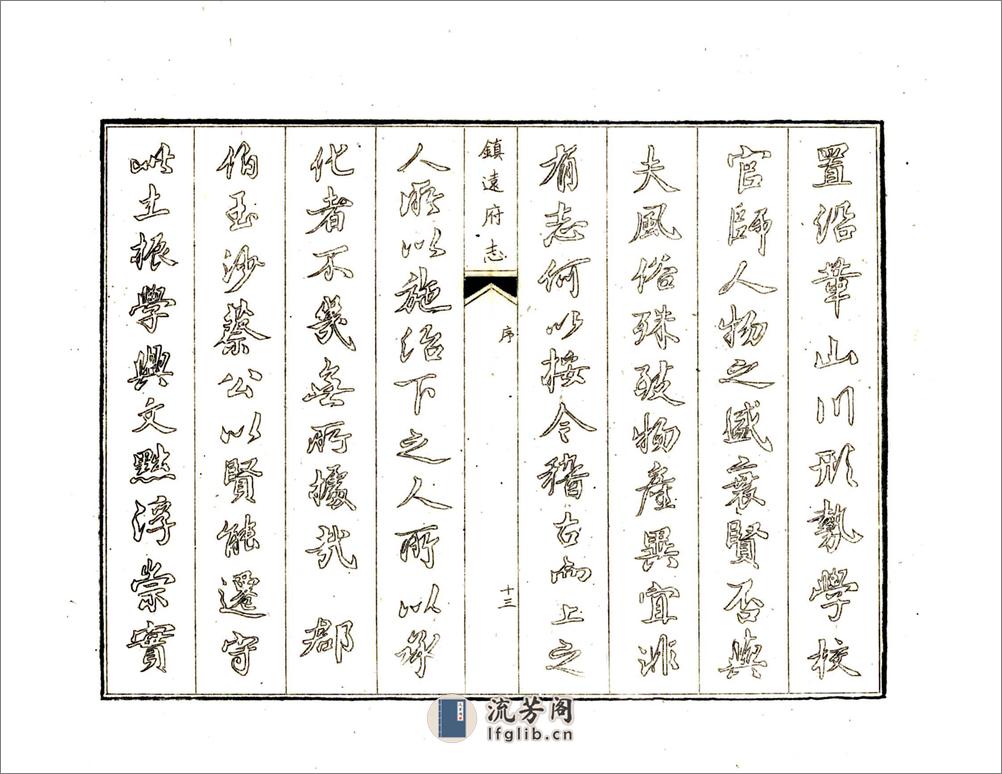 置沿革山川形勢學校
官師人物之盛衰賢否與
夫風俗殊改物產異宜非
有志何以按今稽古而上之
鎮遠府志
序
十三
人所以施治下之人所以承
化者不幾無所據哉 郡
伯玉沙蔡公以賢能遷守
此土振學興文黜浮崇實
流芳阁
lfglib.cn